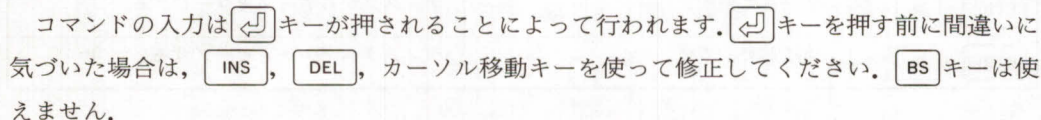 コマンドの入力は⏎キーが押されることによって行われます．⏎キーを押す前に間違いに
気づいた場合は，INS，DEL，カーソル移動キーを使って修正してください．BSキーは使
えません．